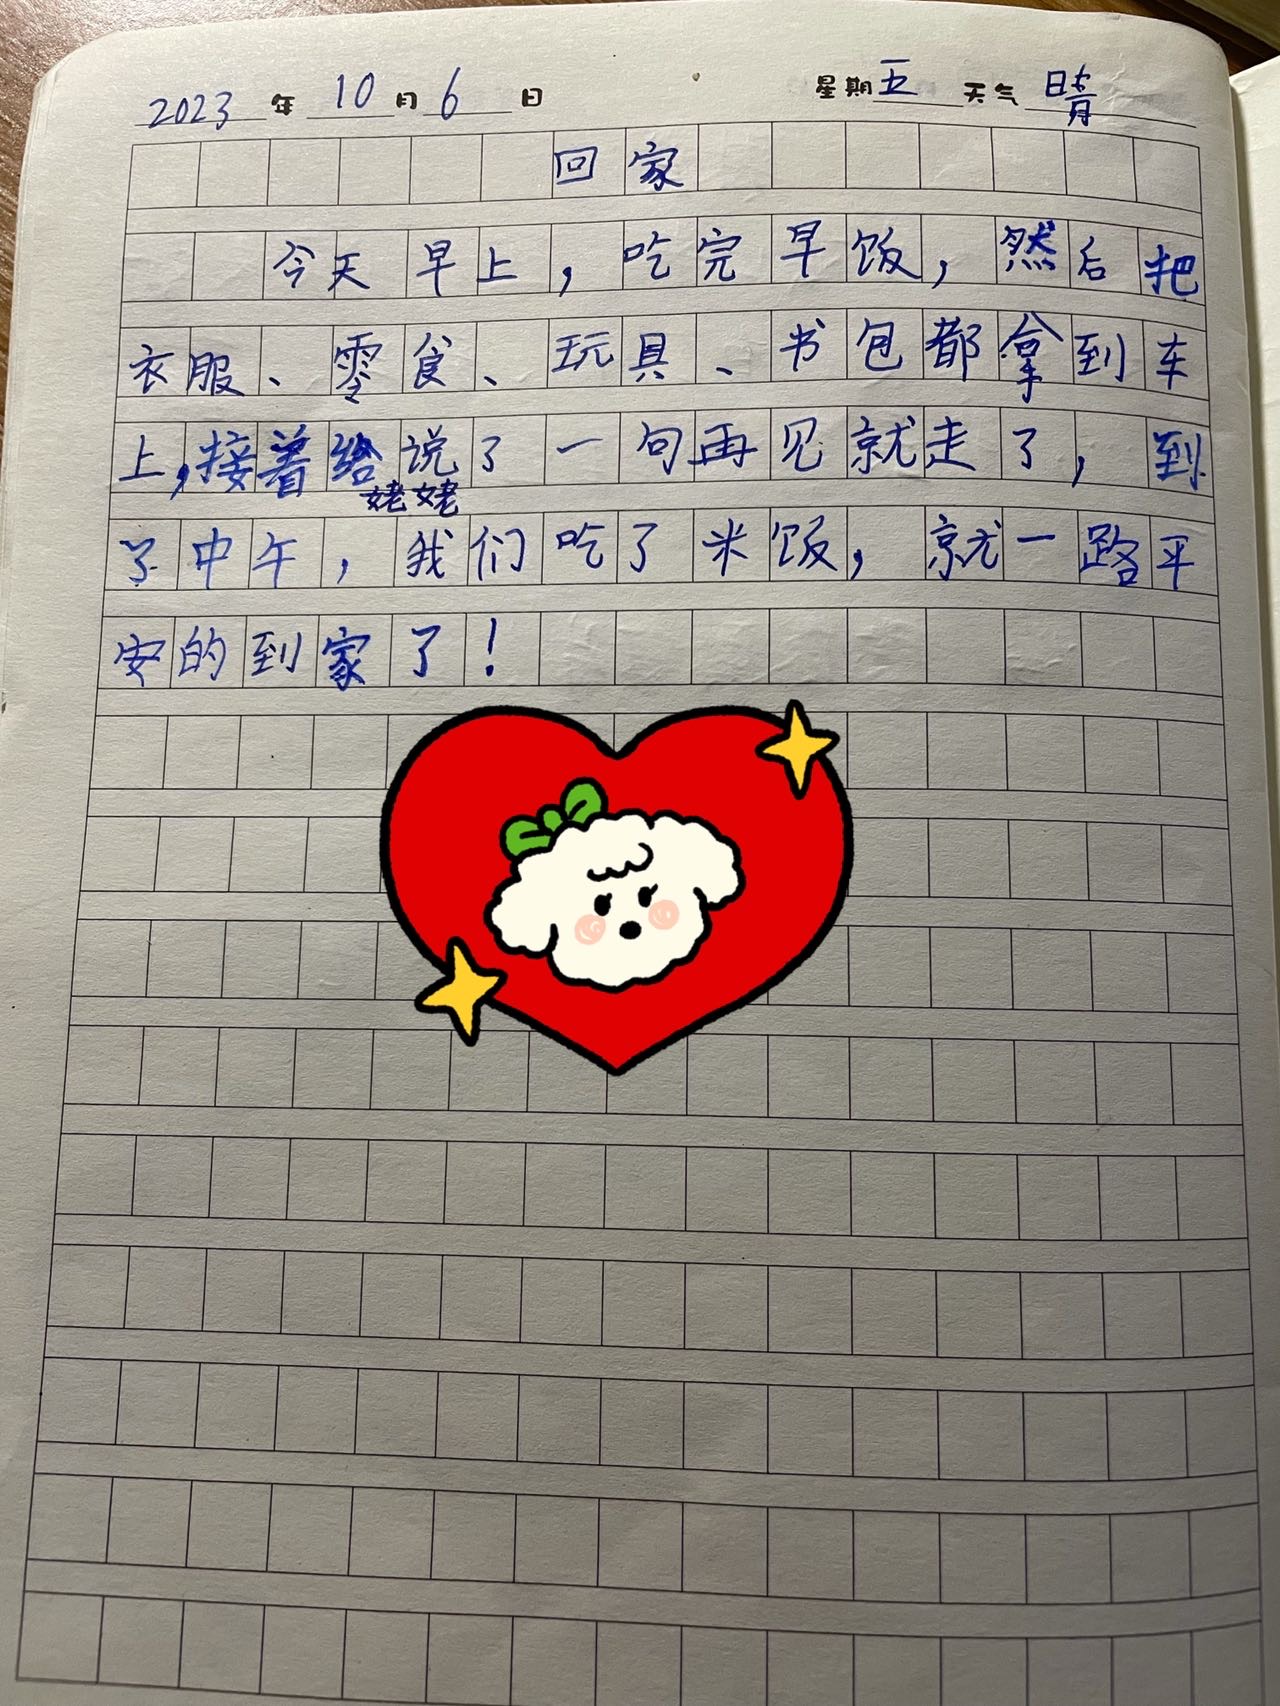 2023年10月6日 星期五 天气晴
回家
今天早上，吃完早饭，然后把
衣服、零食、玩具、书包都拿到车
上，接着给姥姥说了一句再见就走了，到
了中午，我们吃了米饭，就一路平
安的到家了！